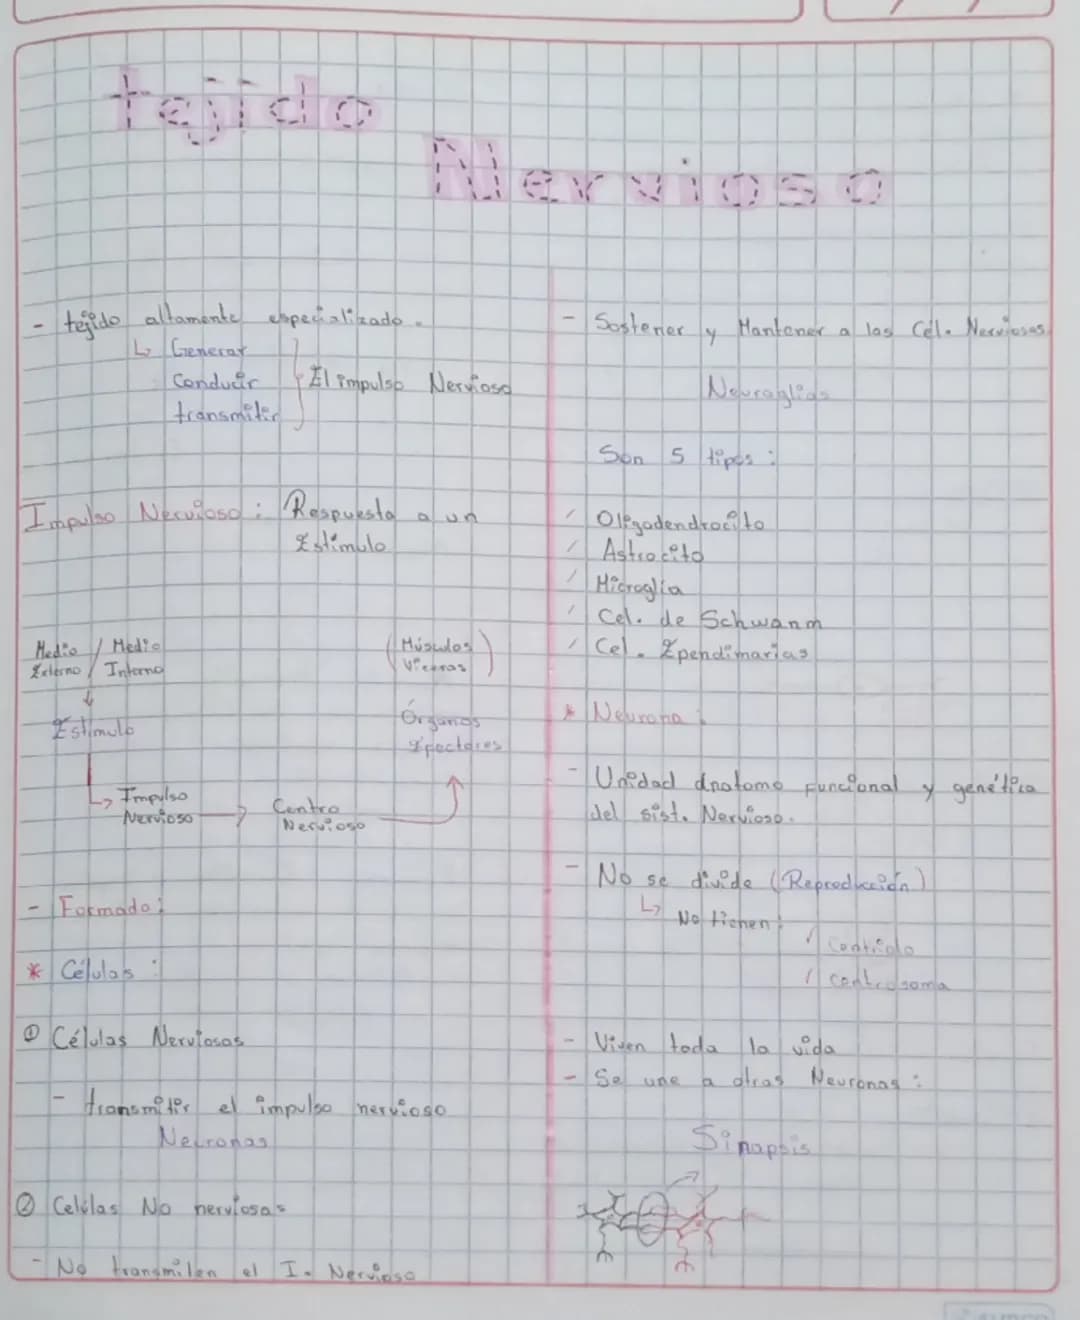 tejido
Nervioso
- tejido altamente especializado.
↳ Generar
Conducir
transmitir
El impulso Nervioso
Impulso Nervioso : Respuesta a un
Estimulo
Medio / Medio
Externo / Interno
↓
Estimulo
↳ Impulso
Nervioso →
Centro
Nervioso
(Músculos
Viceras)
Órganos
Efectores
- Formado:
* Células :
① Células Nerviosas
- transmitir el impulso nervioso
Neuronas
② Celúlas No nerviosas
- No transmiten el I. Nervioso
- Sostener y Mantener a las Cél. Nerviosas
Neuroglias
Son 5 tipos :
/ Oligodendrocito
/ Astrocito
/ Microglia
/ Cel. de Schwann
/ Cel. Ependimarias
* Neurona :
- Unidad anatomo funcional y genética
del sist. Nervioso.
- No se divide (Reproducción)
↳ No tienen:
/ Centriolo
/ centrosoma
- Viven toda la vida
- Se une a otras Neuronas :
Sinapsis